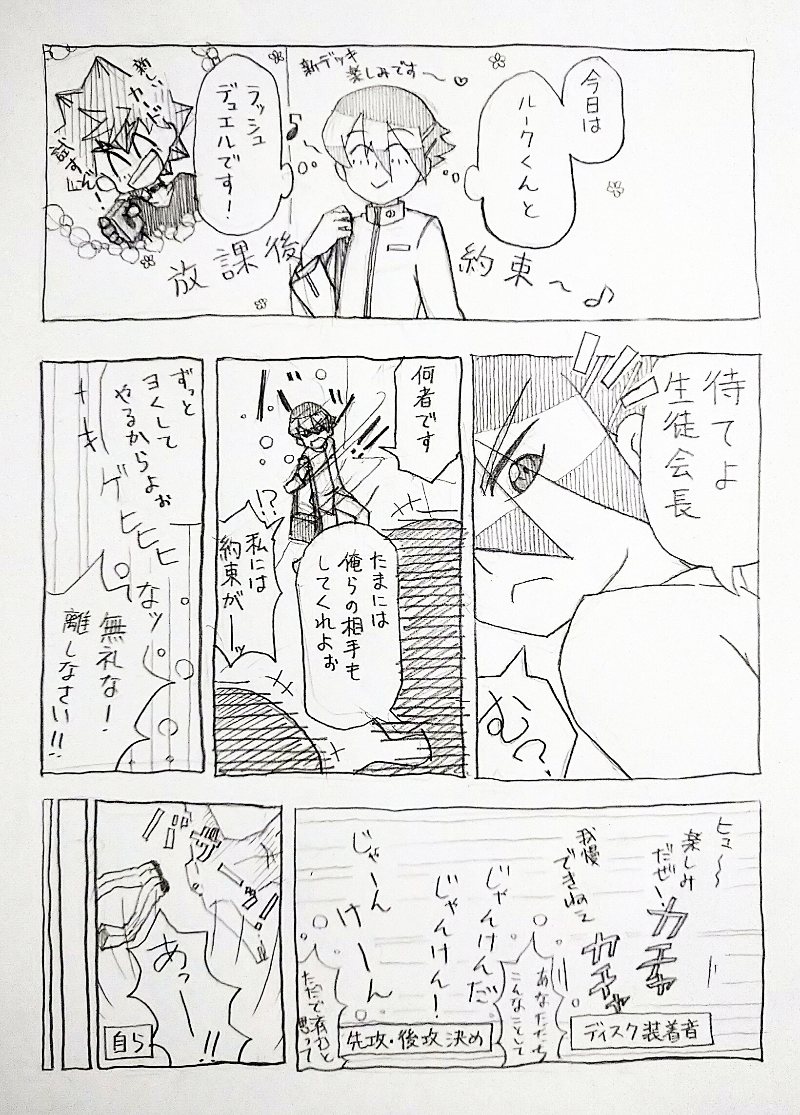 今日は
ルークくんと
新デッキ
楽しみです〜♥
ラッシュ
デュエルです！
新しい
カード
試すんだ！
放課後 約束〜♪
待てよ
生徒会長
むっ？
何者です
たまには
俺らの相手も
してくれよぉ
！？
私には
約束がーッ
ずっと
ヨくして
やるからよぉ
ゲヒヒヒ
なッ
無礼な！
離しなさい！！
ヒュ〜
楽しみ
だぜ〜
ガチャ
我慢
できねえ
ガチャ
ディスク装着音
あなたたち
こんなことして
じゃんけんだ
じゃんけん！
じゃーん
けーん
先攻・後攻決め
ただで済むと
思って
あっー！！
自ら